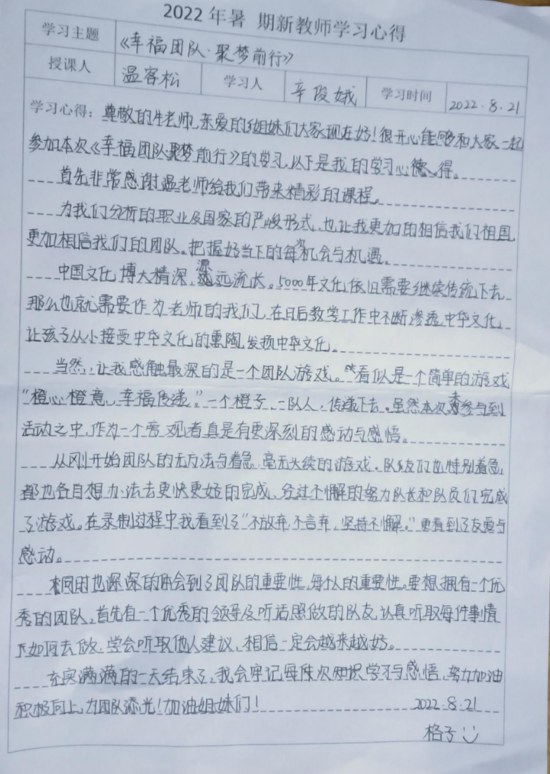 2022年暑 期新教师学习心得
学习主题 《幸福团队·聚梦前行》
授课人 温客松 学习人 辛俊娥 学习时间 2022.8.21
学习心得：尊敬的牛老师,亲爱的姐妹们大家现在好！很开心能够和大家一起
参加本次《幸福团队聚梦前行》的学习,以下是我的学习心得。
首先非常感谢温老师给我们带来精彩的课程。
为我们分析的职业及国家的严峻形式,也让我更加的相信我们祖国,
更加相信我们的团队。把握好当下的每次机会与机遇。
中国文化,博大精深,源远流长。5000年文化依旧需要继续传统下去,
那么也就需要作为老师的我们,在日后教学工作中不断渗透中华文化,
让孩子从小接受中华文化的熏陶,发扬中华文化。
当然,让我感触最深的是一个团队游戏。看似是一个简单的游戏
“橙心橙意,幸福传递。”一个橙子,一队人,传递下去。虽然本次未参与到
活动之中,作为一个客观者真是有更深刻的感动与感悟。
从刚开始团队的无方法与着急,毫无头绪的游戏,队友们也特别着急,
都也各自想办法去更快更好的完成,经过不懈的努力队长和队员们完成
了游戏。在录制过程中我看到了“不放弃,不言弃,坚持不懈。”更看到了友爱与
感动。
同时也深深的体会到了团队的重要性,每个人的重要性,要想拥有一个优
秀的团队,首先有一个优秀的领导及听话照做的队友,认真听取每件事情
如何去做,学会听取他人建议,相信一定会越来越好。
充实满满的一天结束了,我会牢记每一次知识学习与感悟,努力加油
积极向上,为团队添光!加油姐妹们! 2022.8.21
格子